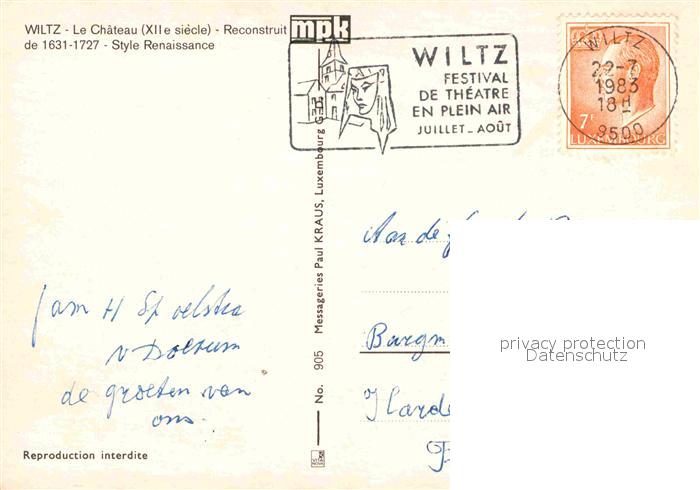 WILTZ - Le Château (XIIe siècle) - Reconstruit
de 1631-1727 - Style Renaissance
mpk
WILTZ
FESTIVAL
DE THÉATRE
EN PLEIN AIR
JUILLET _ AOÛT
WILTZ
22-7
1983
18H
9500
7F
LUXEMBOURG
No. 905 Messageries Paul KRAUS, Luxembourg G
Aan de
fam H Spoelstra
v Doorum
de groeten van
ons.
Burgm
Harde
privacy protection
Datenschutz
Reproduction interdite